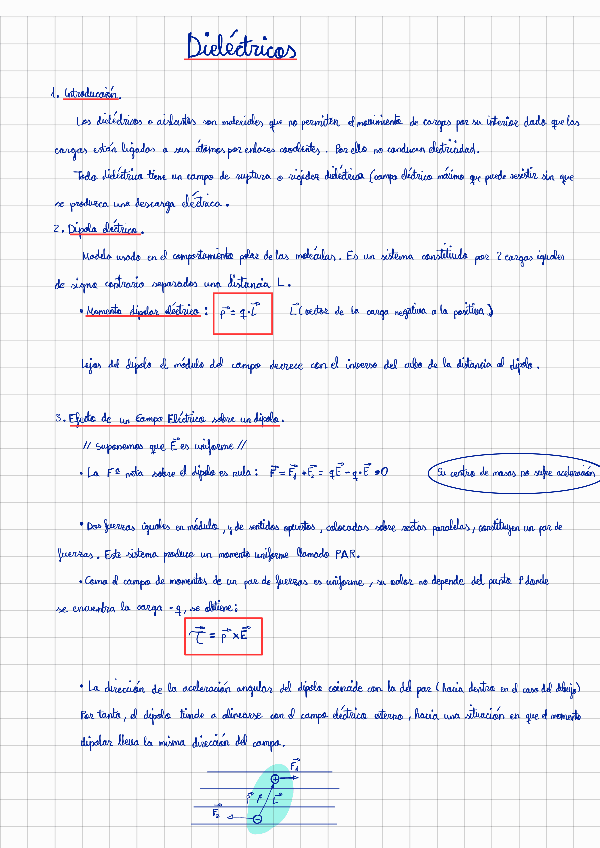 Dieléctricos
1. Introducción.
Los dieléctricos o aislantes son materiales que no permiten el movimiento de cargas por su interior dado que las
cargas están ligadas a sus átomos por enlaces covalentes. Por ello no conducen electricidad.
Todo dieléctrico tiene un campo de ruptura o rigidez dieléctrica (campo eléctrico máximo que puede resistir sin que
se produzca una descarga eléctrica.
2. Dipolo eléctrico.
Modelo usado en el comportamiento polar de las moléculas. Es un sistema constituido por 2 cargas iguales
de signo contrario separados una distancia L.
• Momento dipolar eléctrico: p⃗ = q·L⃗ L⃗ (vector de la carga negativa a la positiva)
Lejos del dipolo el módulo del campo decrece con el inverso del cubo de la distancia al dipolo.
3. Efecto de un Campo Eléctrico sobre un dipolo.
// Suponemos que E⃗ es uniforme //
• La Fª neta sobre el dipolo es nula: F⃗ = F⃗₁ + F⃗₂ = qE⃗ - q·E⃗ = 0 Su centro de masas no sufre aceleración
• Dos fuerzas iguales en módulo, y de sentidos opuestos, colocadas sobre rectas paralelas, constituyen un par de
fuerzas. Este sistema produce un momento uniforme llamado PAR.
• Como el campo de momentos de un par de fuerzas es uniforme, su valor no depende del punto P donde
se encuentra la carga -q, se obtiene:
τ⃗ = p⃗ × E⃗
• La dirección de la aceleración angular del dipolo coincide con la del par (hacia dentro en el caso del dibujo)
Por tanto, el dipolo tiende a alinearse con el campo eléctrico externo, hacia una situación en que el momento
dipolar lleva la misma dirección del campo.
F⃗₁
+
L⃗
F⃗₂
-